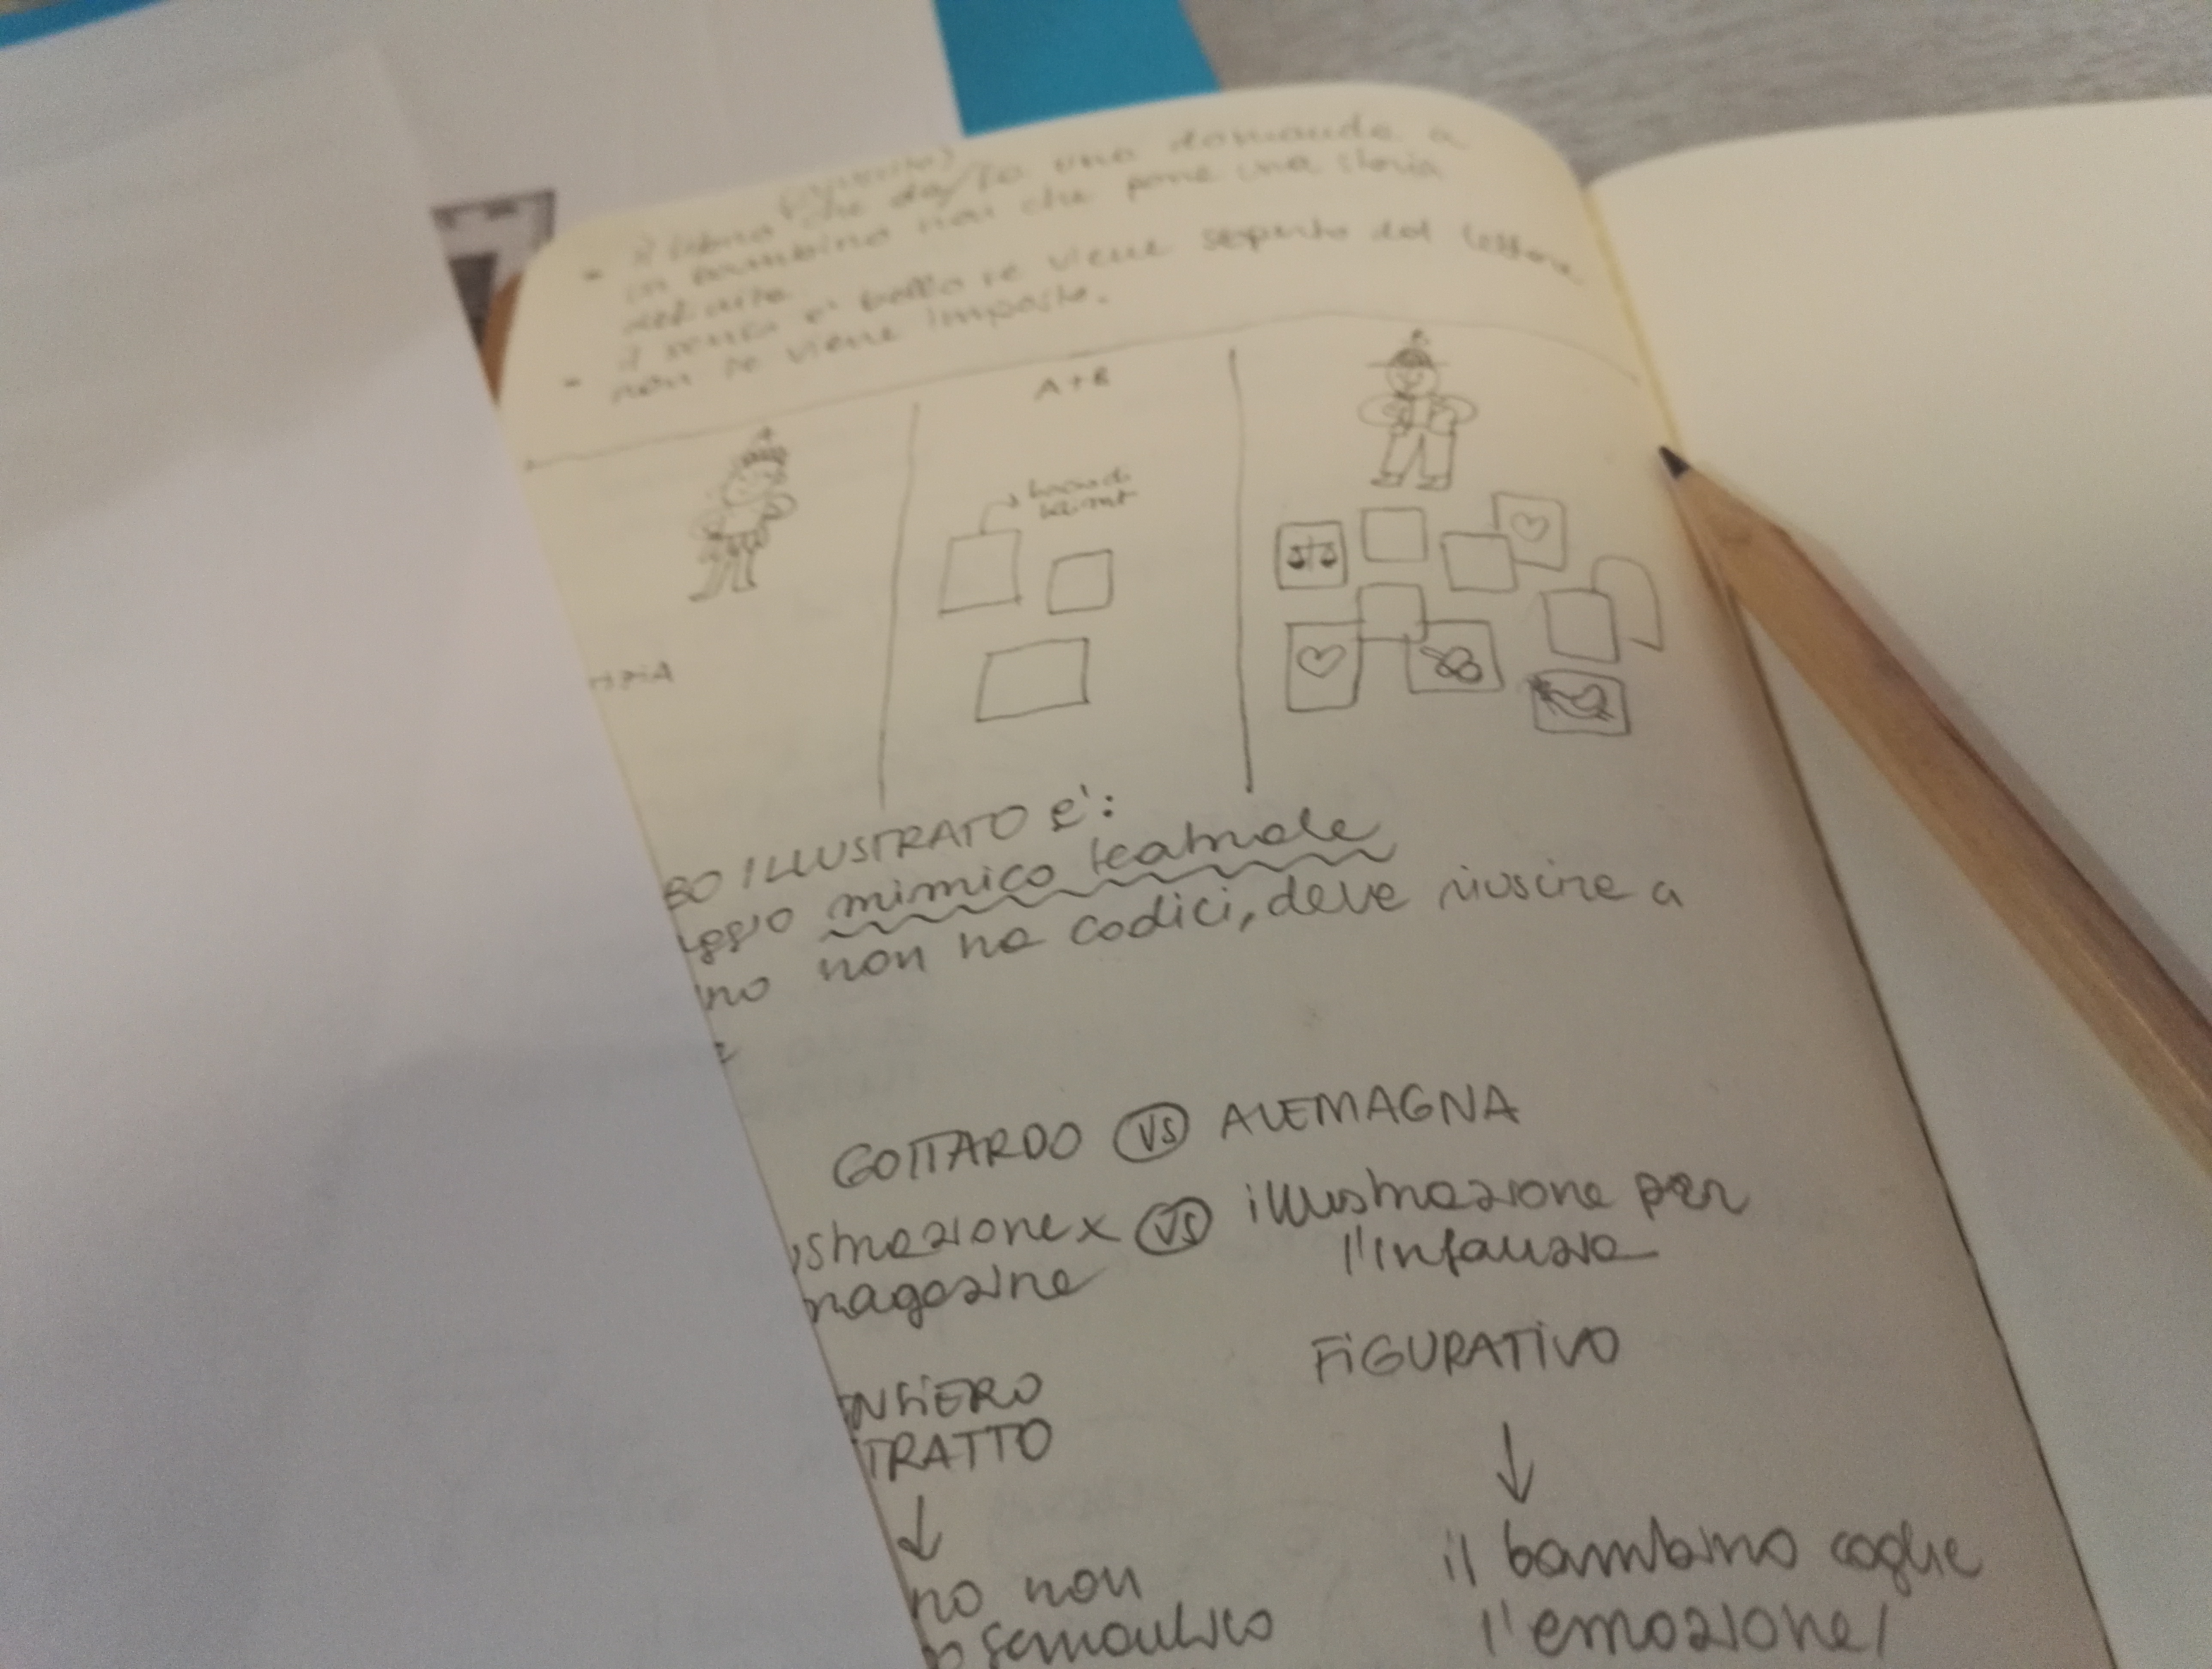 che da/fa una domanda a
un bambino non che pone una storia
- il senso e' bello se viene scoperto dal lettore
non se viene imposto.
A+B
BO ILLUSTRATO E':
ggio mimico teatrale
no non ha codici, deve riuscire a
GOTTARDO VS ALEMAGNA
strazione x VS illustrazione per
magazine l'infanzia
NSIERO FIGURATIVO
TRATTO
no non il bambino coglie
semantico l'emozione/